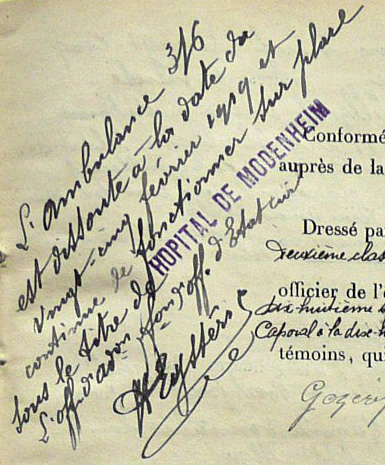 L'ambulance 3/6
est dissoute à la date du
vingt-cinq février 1919 et
continue de fonctionner sur place
sous le titre de HOPITAL DE MODENHEIM
L'off. d'adm. fon. d'off. d'Etat civil
Conformé
auprès de la
Dressé pa
Deuxième clas
officier de l'é
dix huitième
Caporal à la dix-h
témoins, qui